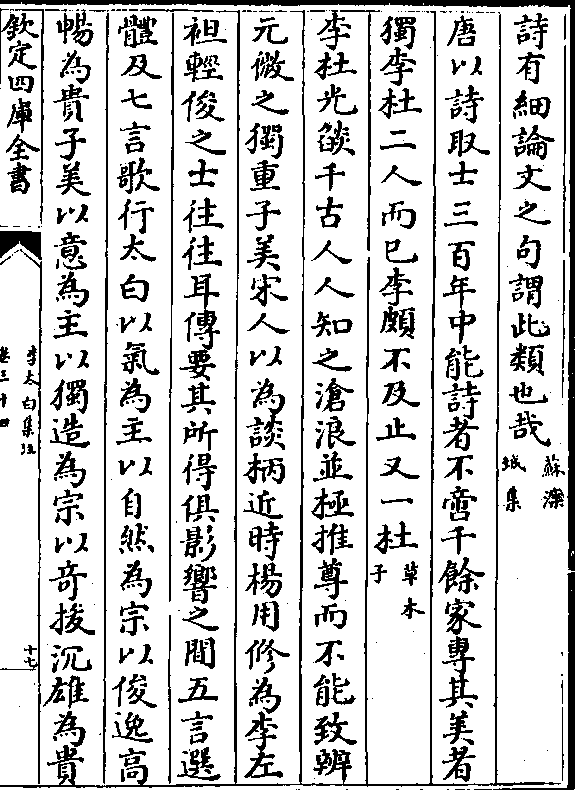 詩有細論文之句謂此類也哉蘇灤城集
唐以詩取士三百年中能詩者不啻千餘家專其美者
獨李杜二人而已李頗不及止又一杜草木子
李杜光燄千古人人知之滄浪並極推尊而不能致辨
元微之獨重子美宋人以為談柄近時楊用修為李左
袒輕俊之士往往耳傳要其所得俱影響之間五言選
體及七言歌行太白以氣為主以自然為宗以俊逸高
暢為貴子美以意為主以獨造為宗以奇拔沉雄為貴
欽定四庫全書
李太白集注
卷三十四
十七